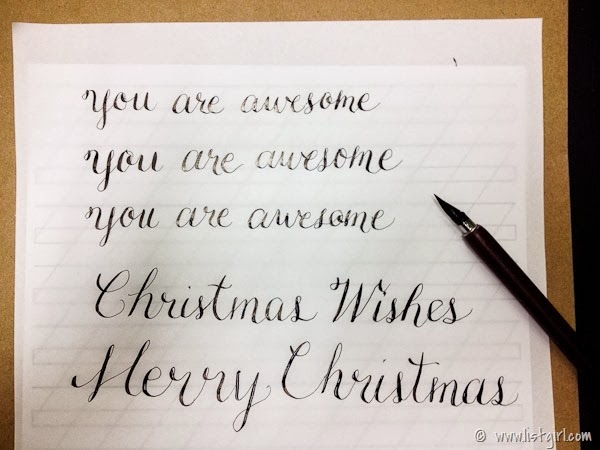 you are awesome
you are awesome
you are awesome
Christmas Wishes
Merry Christmas
© www.listgirl.com